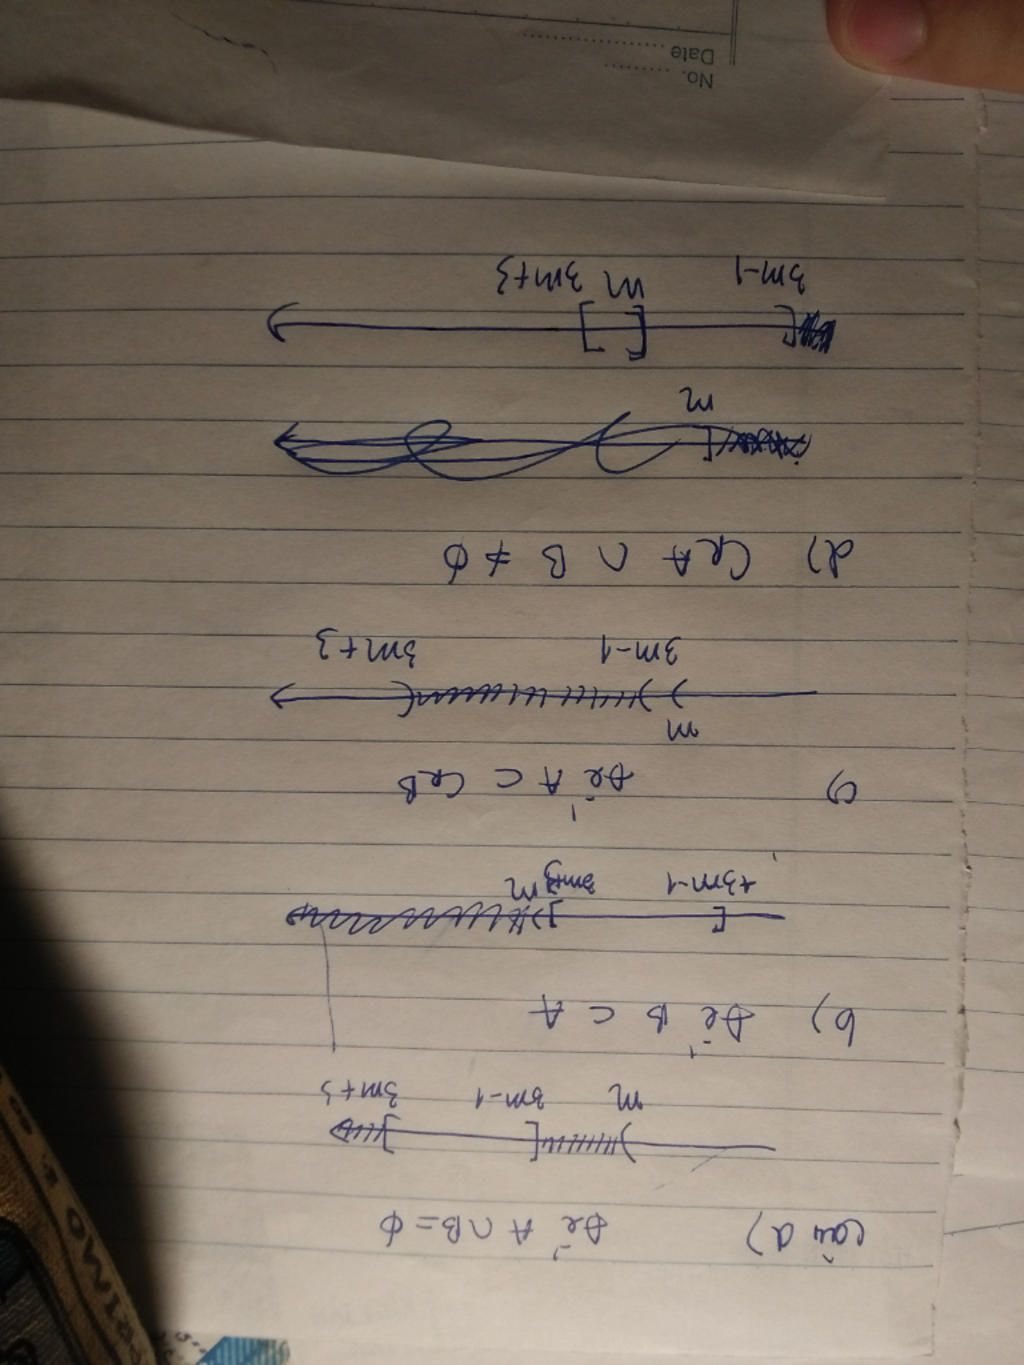 Câu a) Để A ∩ B = ∅
m 3m-1 3m+3
b) Để B ⊂ A
3m-1 3m+3 m
c) Để A ⊂ CRB
m
3m-1 3m+3
d) CRA ∩ B ≠ ∅
m
3m-1 m 3m+3
No.
Date